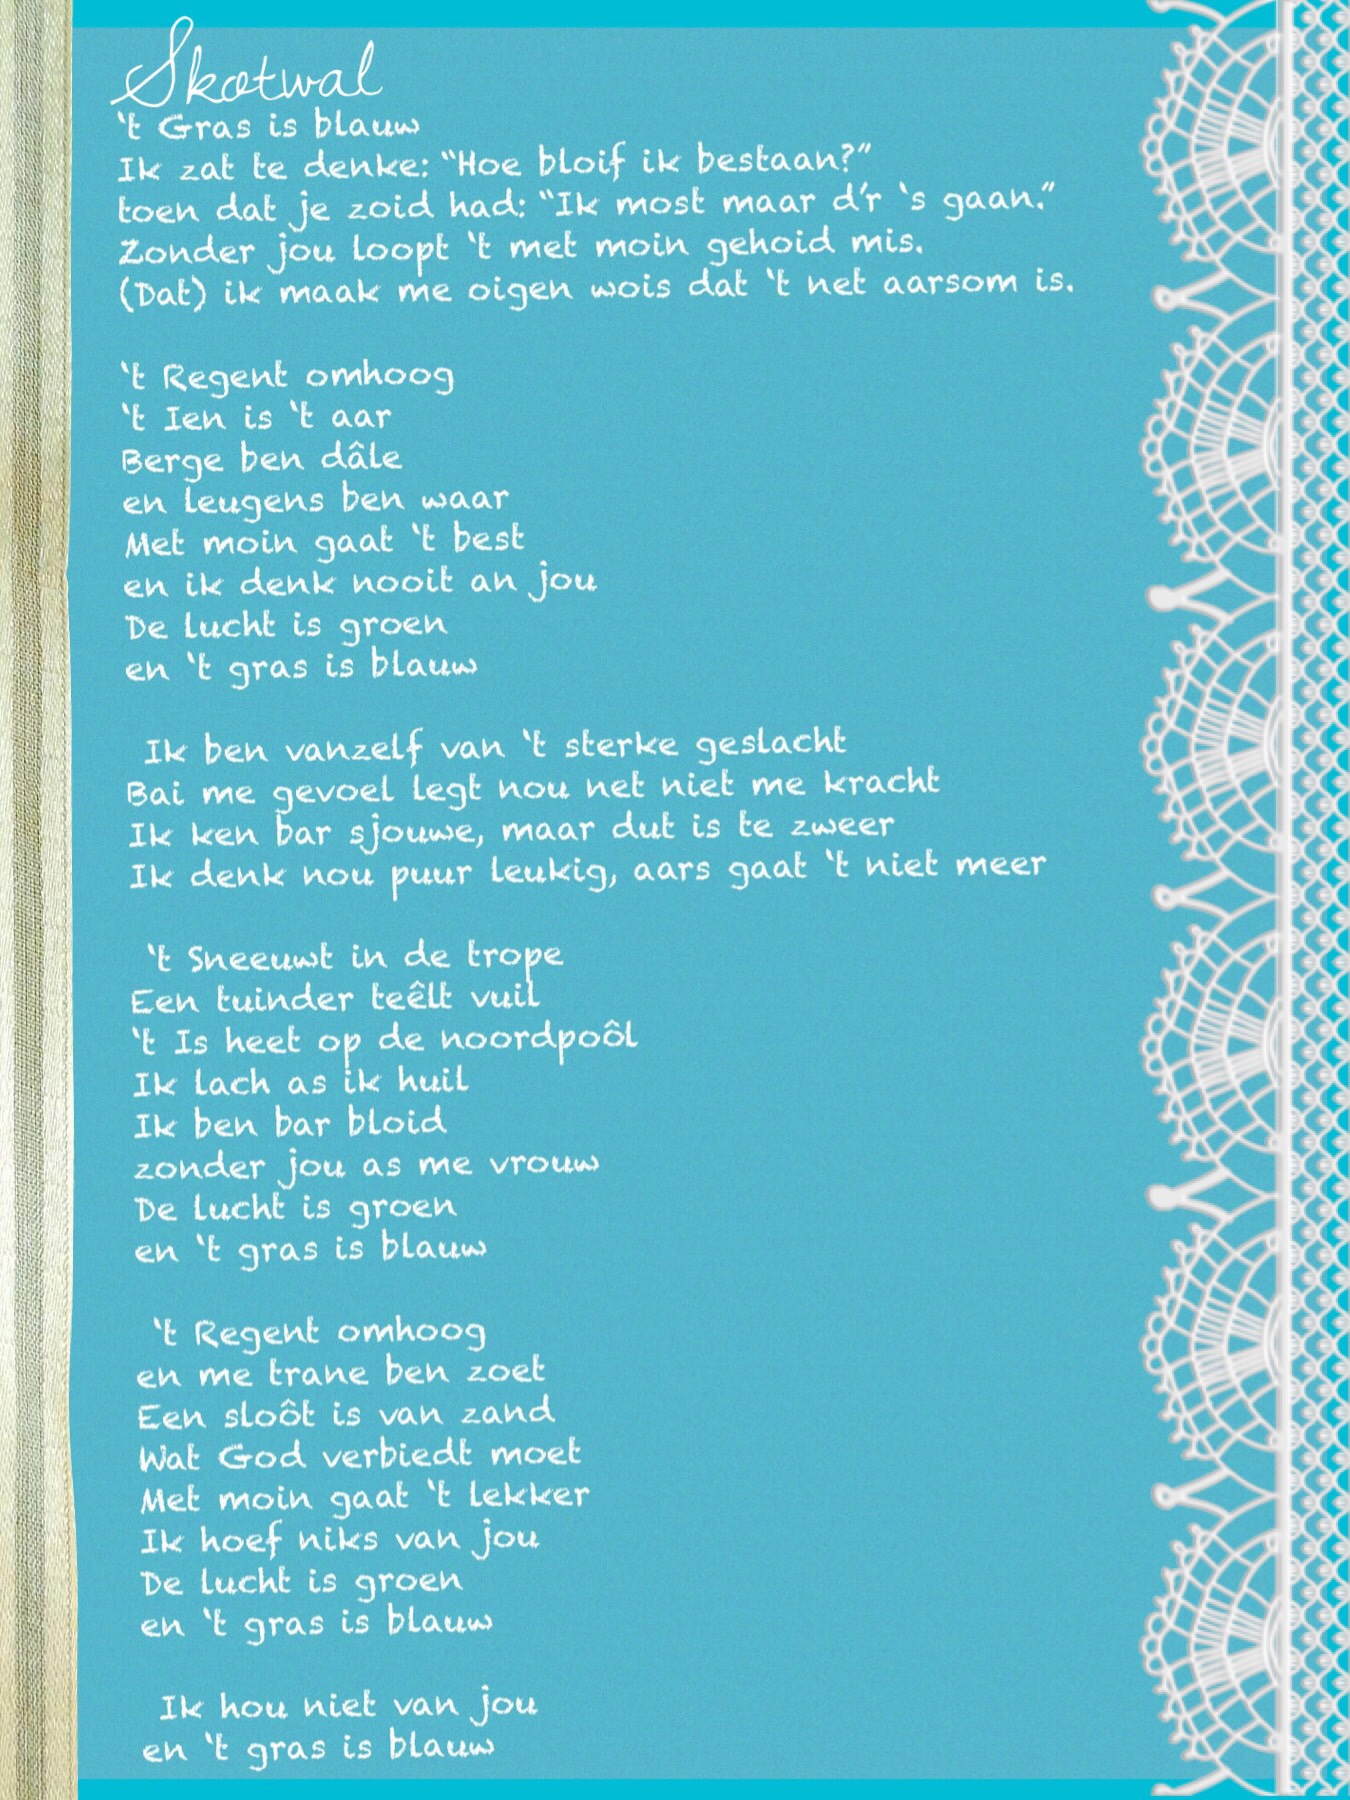 Skotwal
‘t Gras is blauw
Ik zat te denke: “Hoe bloif ik bestaan?”
toen dat je zoid had: “Ik most maar d’r ‘s gaan.”
Zonder jou loopt ‘t met moin gehoid mis.
(Dat) ik maak me oigen wois dat ‘t net aarsom is.

‘t Regent omhoog
‘t Ien is ‘t aar
Berge ben dâle
en leugens ben waar
Met moin gaat ‘t best
en ik denk nooit an jou
De lucht is groen
en ‘t gras is blauw

Ik ben vanzelf van ‘t sterke geslacht
Bai me gevoel legt nou net niet me kracht
Ik ken bar sjouwe, maar dut is te zweer
Ik denk nou puur leukig, aars gaat ‘t niet meer

‘t Sneeuwt in de trope
Een tuinder teêlt vuil
‘t Is heet op de noordpoôl
Ik lach as ik huil
Ik ben bar bloid
zonder jou as me vrouw
De lucht is groen
en ‘t gras is blauw

‘t Regent omhoog
en me trane ben zoet
Een sloôt is van zand
Wat God verbiedt moet
Met moin gaat ‘t lekker
Ik hoef niks van jou
De lucht is groen
en ‘t gras is blauw

Ik hou niet van jou
en ‘t gras is blauw